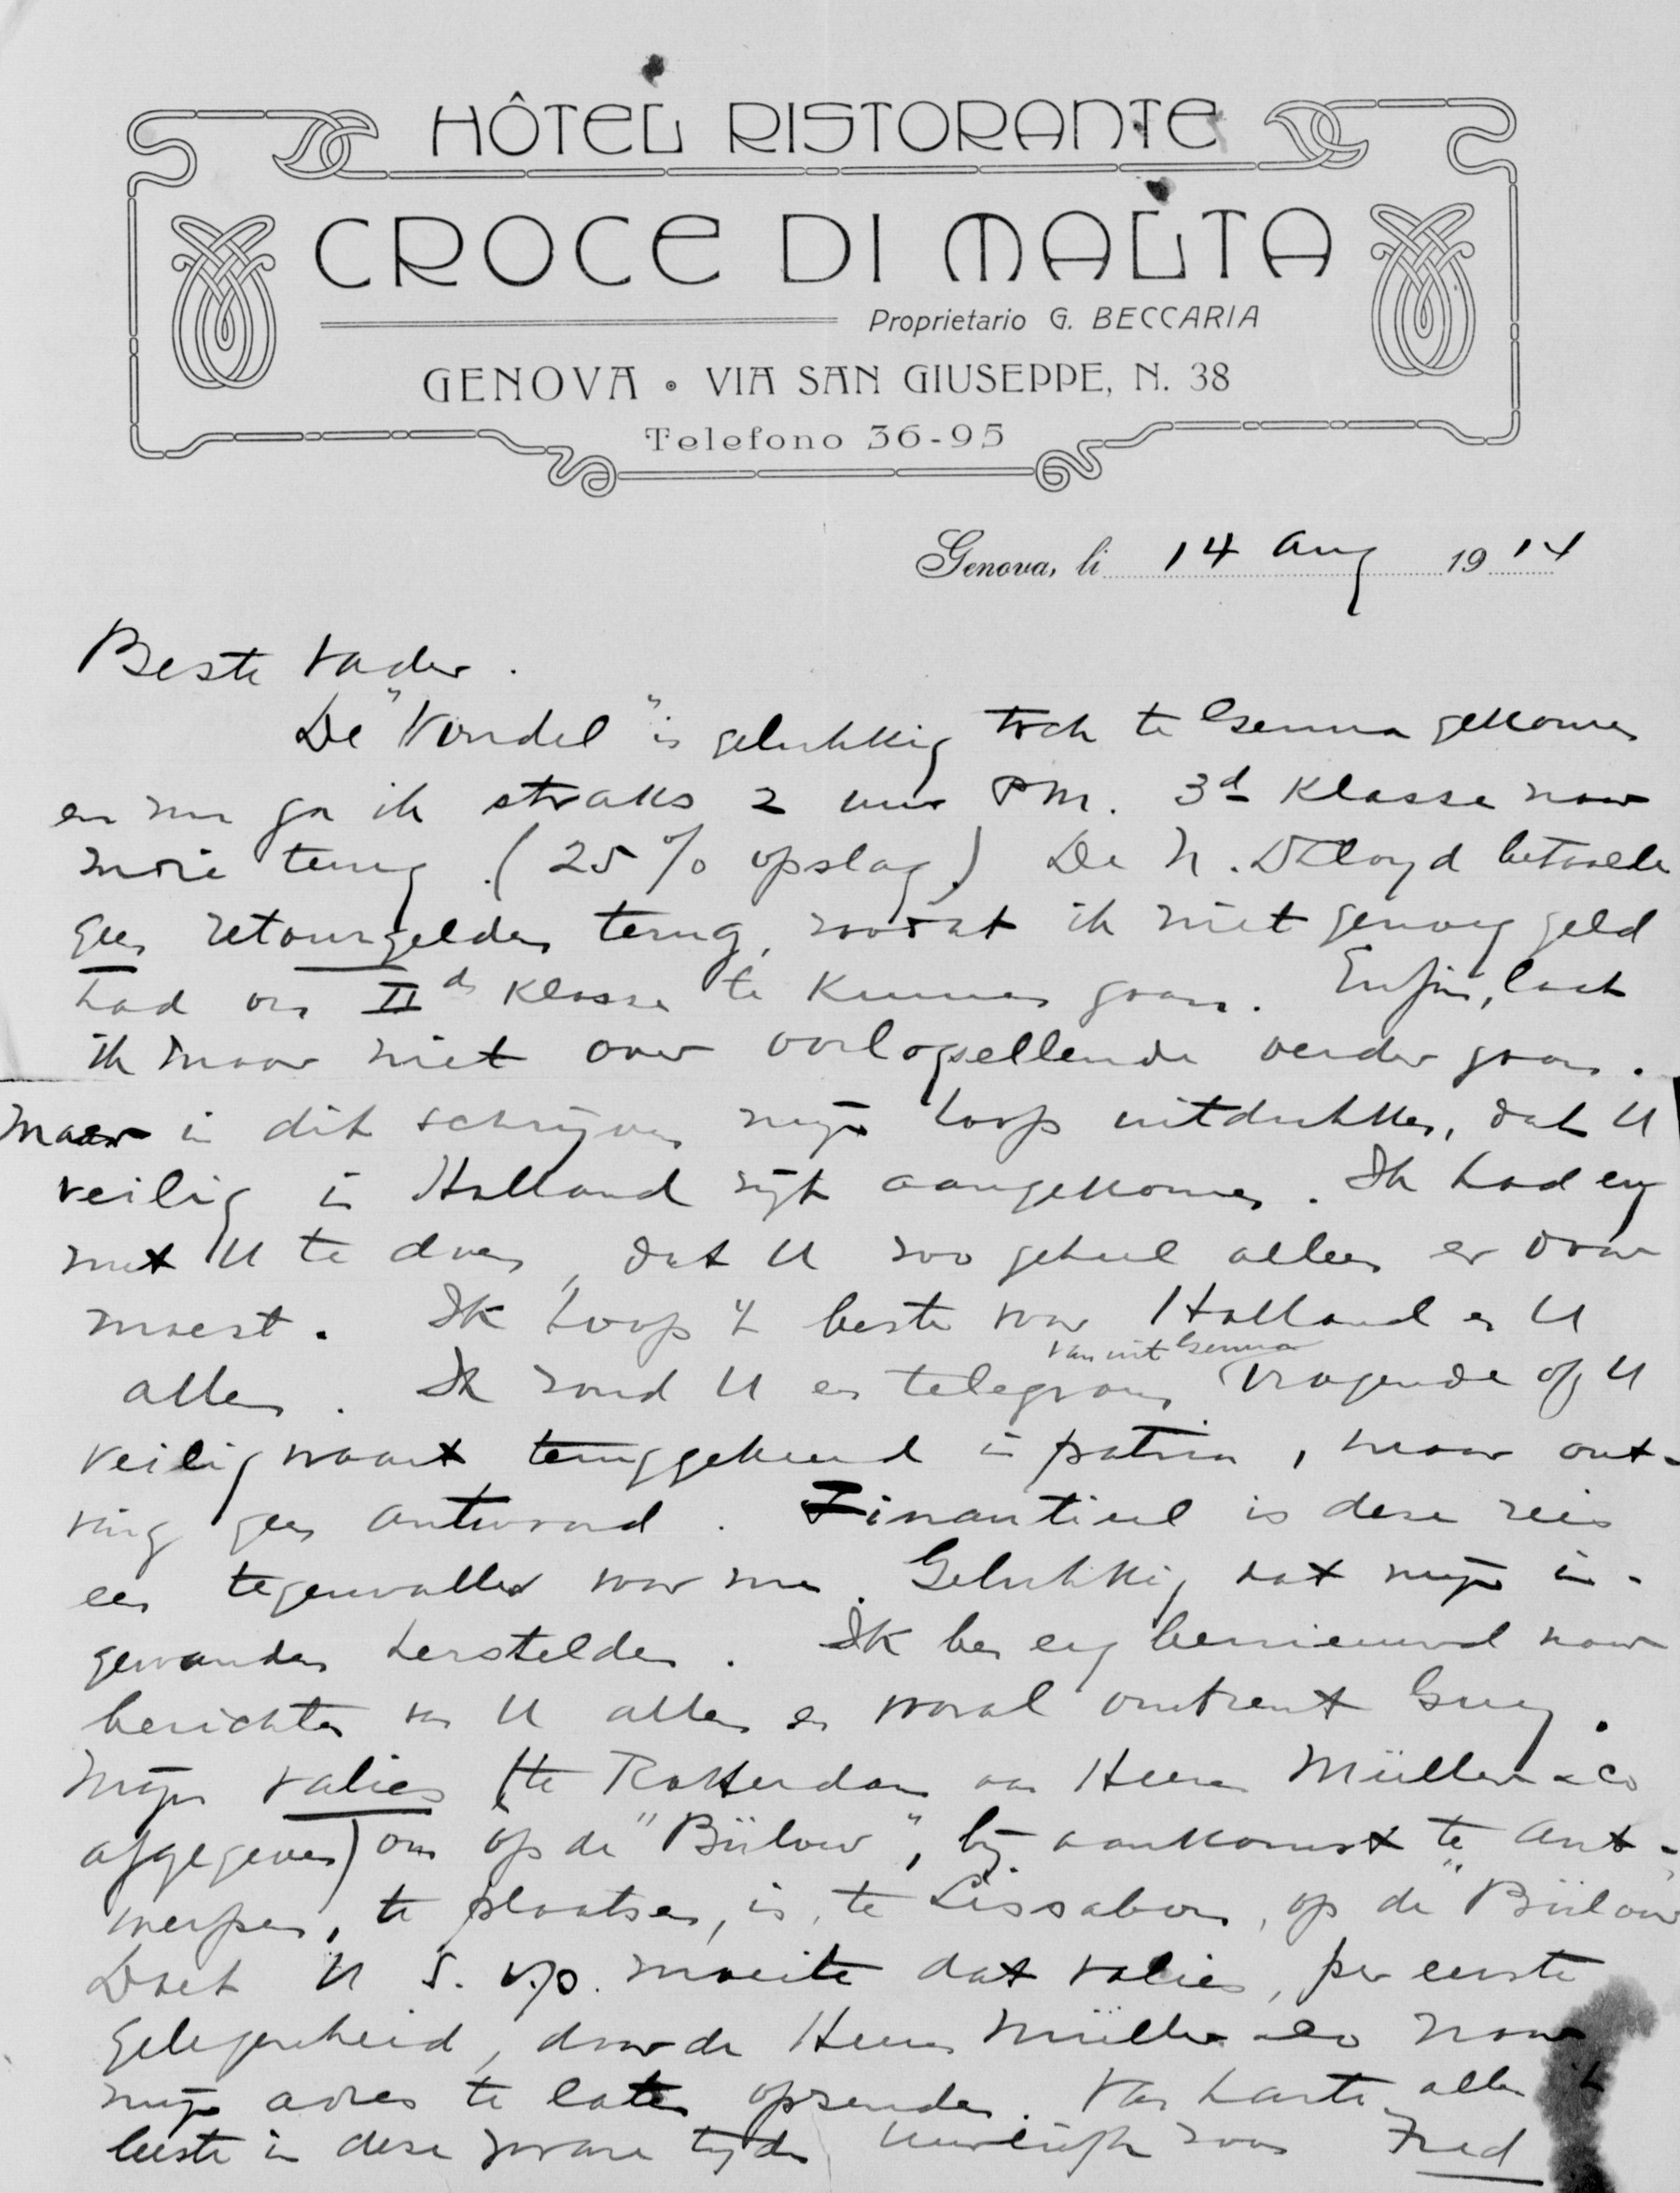 HÔTEL RISTORANTE
CROCE DI MALTA
Proprietario G. BECCARIA
GENOVA • VIA SAN GIUSEPPE, N. 38
Telefono 36-95
Genova, li 14 Aug 1914
Beste Vader.
De "Vondel" is gelukkig toch te Genua gekomen
en nu ga ik straks 2 uur PM. 3d Klasse naar
terug. (25% opslag) De N. D. Lloyd betaalde
geen retourgelden terug, zoodat ik niet genoeg geld
had om IIde Klasse te kunnen gaan. Enfin, laat
ik maar niet over verder gaan.
Maar in dit schrijven mijn hoop uitdrukken, dat U
veilig in Holland zijt aangekomen. Ik had erg
met U te doen, dat U zoo geheel alleen er door
moest. Ik hoop 't beste voor Holland en U
van uit Genua
allen. Ik zond U een telegram vragende of U
veilig waart teruggekeerd in patria, maar ont-
ving geen antwoord. Finantieel is deze reis
een tegenvaller voor me. Gelukkig dat mijn in-
gewanden herstelden. Ik ben erg benieuwd naar
berichten van U allen en vooral omtrent Guy.
Mijn valies (te Rotterdam aan Heeren Müller & Co
afgegeven) om op de "Bülow", bij aankomst te Ant-
werpen, te plaatsen, is te Lissabon, op de "Bülow"
Doet U s.v.p. moeite dat valies, per eerste
gelegenheid, door de Heeren Müller & Co naar
mijn adres te laten opzenden. Van harte allen 't
beste in deze zware tijden Uw zoon Fred